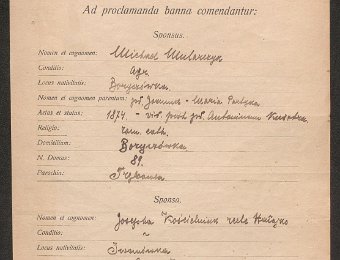 Ad proclamanda banna comendantur:
Sponsus.
Nomen et cognomen: Michael Mularczyk
Conditio: Agr.
Locus nativitatis: Boryczówka
Nomen et cognomen parentum: Joannis - Maria
Aetas et status: 1874 -
Religio: rom. cath.
Domicilium: Boryczówka
N. Domus: 89.
Parochia: Trembowla
Sponsa.
Nomen et cognomen: Josepha Kościelniuk
Conditio: "
Locus nativitatis: Iwanówka